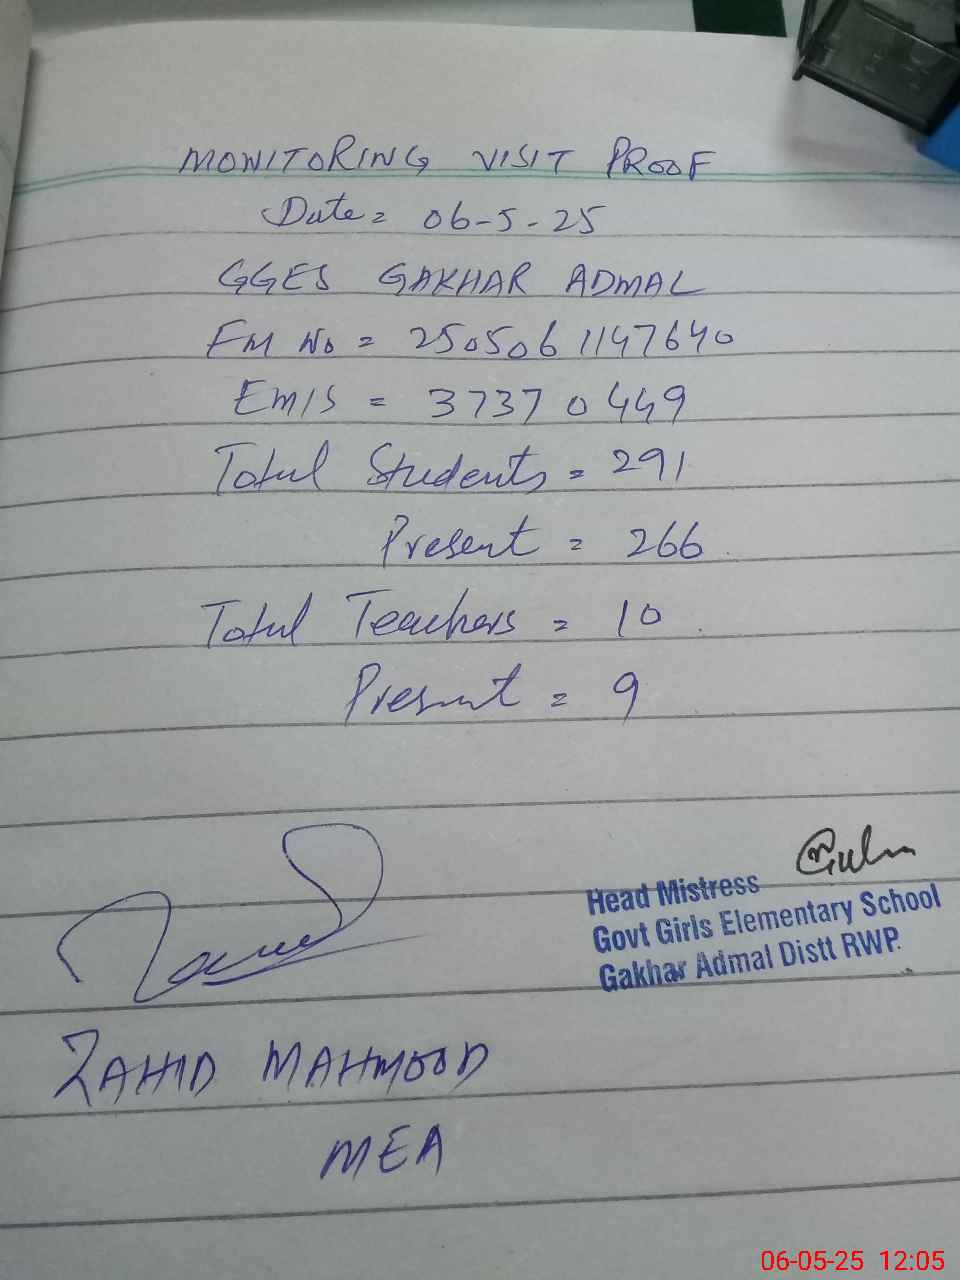 MONITORING VISIT PROOF
Date = 06-5-25
GGES GAKHAR ADMAL
FM No = 2505061147640
EMIS = 37370449
Total Students = 291
Present = 266
Total Teachers = 10
Present = 9
Head Mistress
Govt Girls Elementary School
Gakhar Admal Distt RWP.
ZAHID MAHMOOD
MEA
06-05-25 12:05